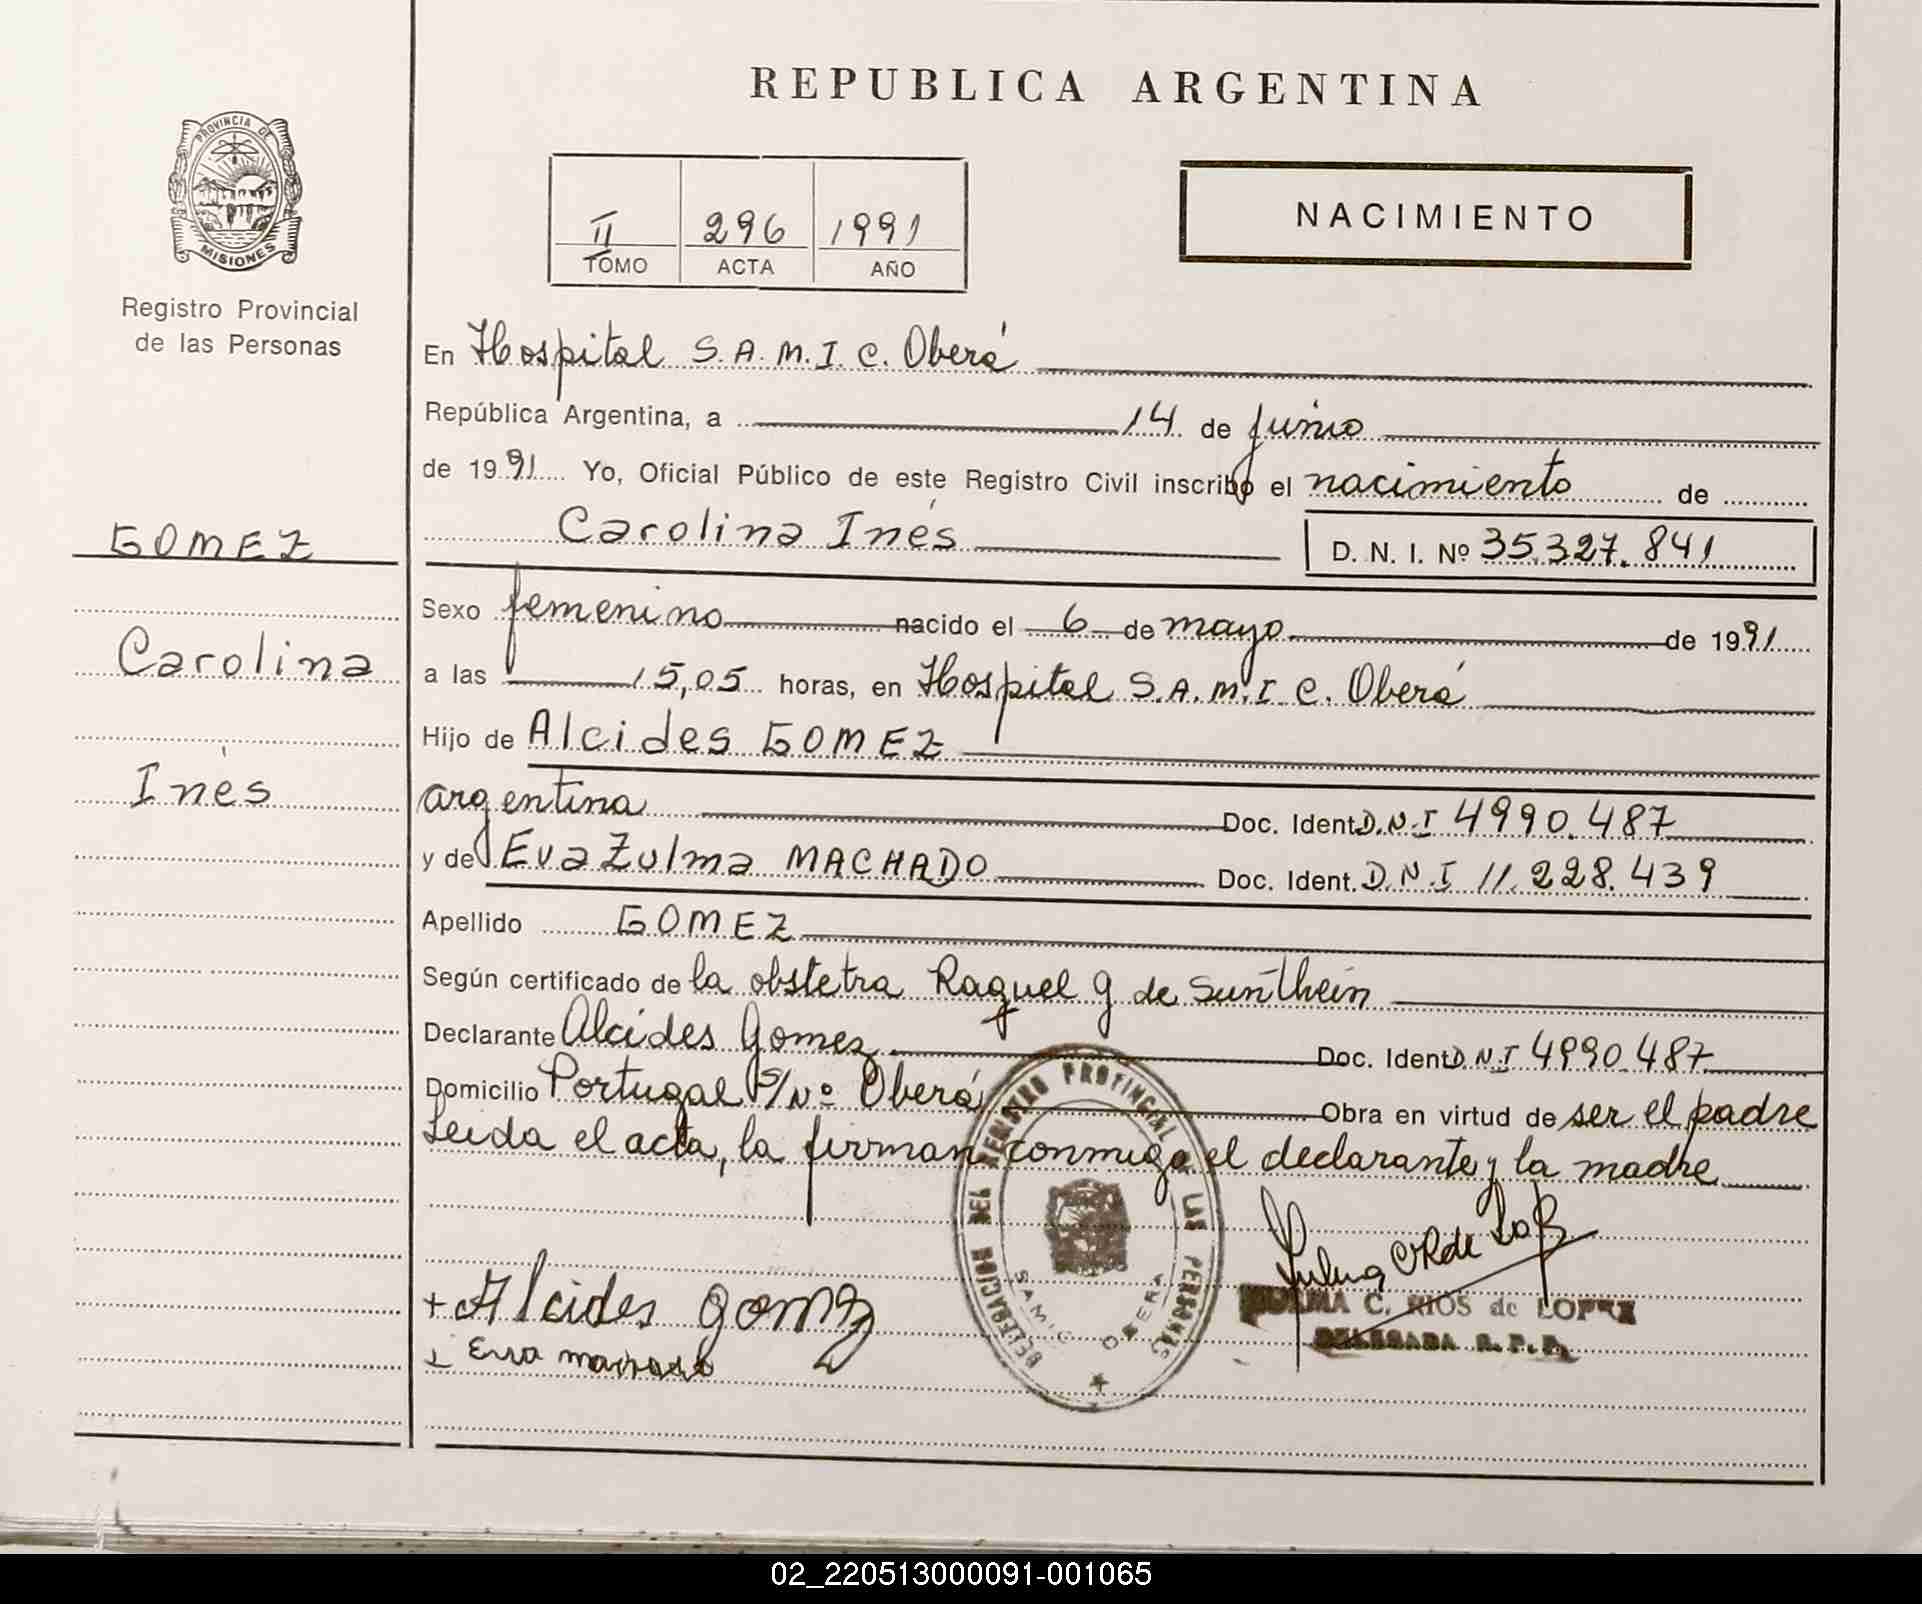 REPUBLICA ARGENTINA
PROVINCIA DE
MISIONES
Registro Provincial
de las Personas
II 296 1991
TOMO ACTA AÑO
NACIMIENTO
GOMEZ
Carolina
Inés
En Hospital S.A.M.I.C. Oberá
República Argentina, a 14 de Junio
de 1991 Yo, Oficial Público de este Registro Civil inscribo el nacimiento de
Carolina Inés D. N. I. Nº 35.327.841
Sexo femenino nacido el 6 de mayo de 1991
a las 15,05 horas, en Hospital S.A.M.I.C. Oberá
Hijo de Alcides GOMEZ
argentina Doc. Ident. D.N.I 4990.487
y de Eva Zulma MACHADO Doc. Ident. D.N.I 11.228.439
Apellido GOMEZ
Según certificado de la obstetra Raquel G de
Declarante Alcides Gomez Doc. Ident. D.N.I 4990.487
Domicilio Portugal S/Nº Oberá Obra en virtud de ser el padre
Leida el acta, la firman conmigo el declarante y la madre
DELEGACION DEL REGISTRO PROVINCIAL DE LAS PERSONAS
SAMIC OBERA
+ Alcides Gomez
C. RIOS de LOPEZ
DELEGADA R.P.P.
02_220513000091-001065